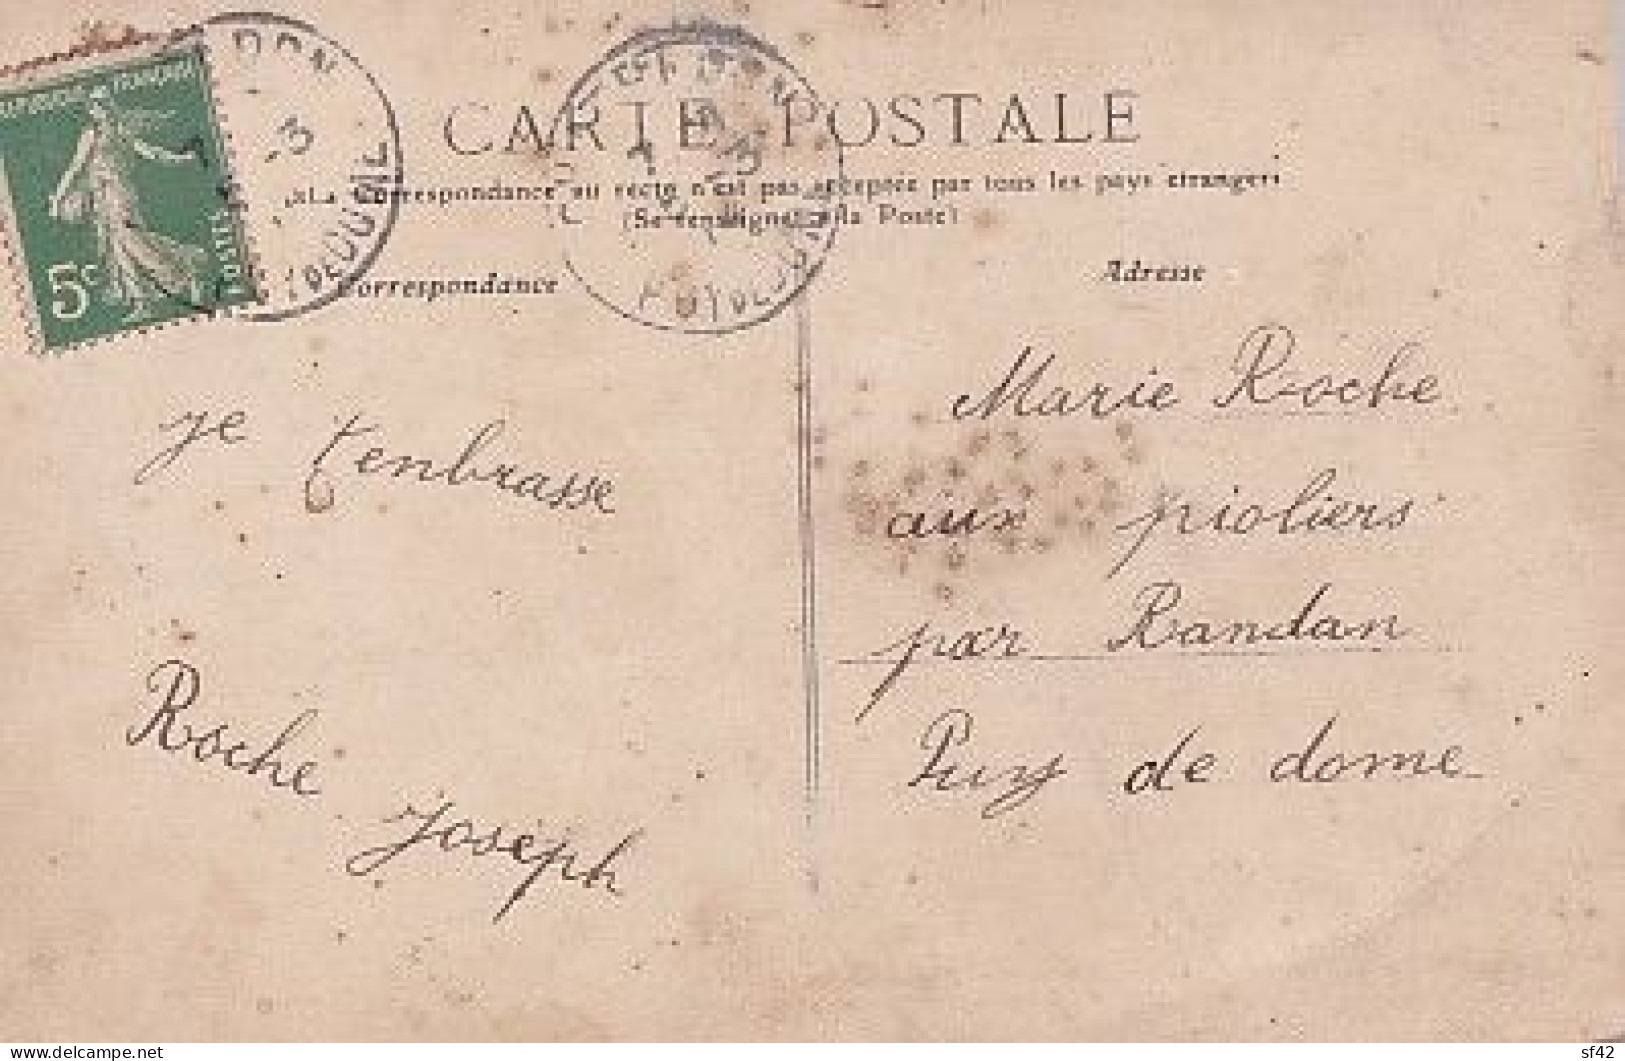 CARTE POSTALE
La Correspondance au recto n'est pas acceptée par tous les pays étrangers
(Se renseigner à la Poste)
Correspondance
Adresse
5c
POSTES
PUY DE DOME
je t'enbrasse
Roche Joseph
Marie Roche
aux pioliers
par Randan
Puy de dome
delcampe.net
sf42